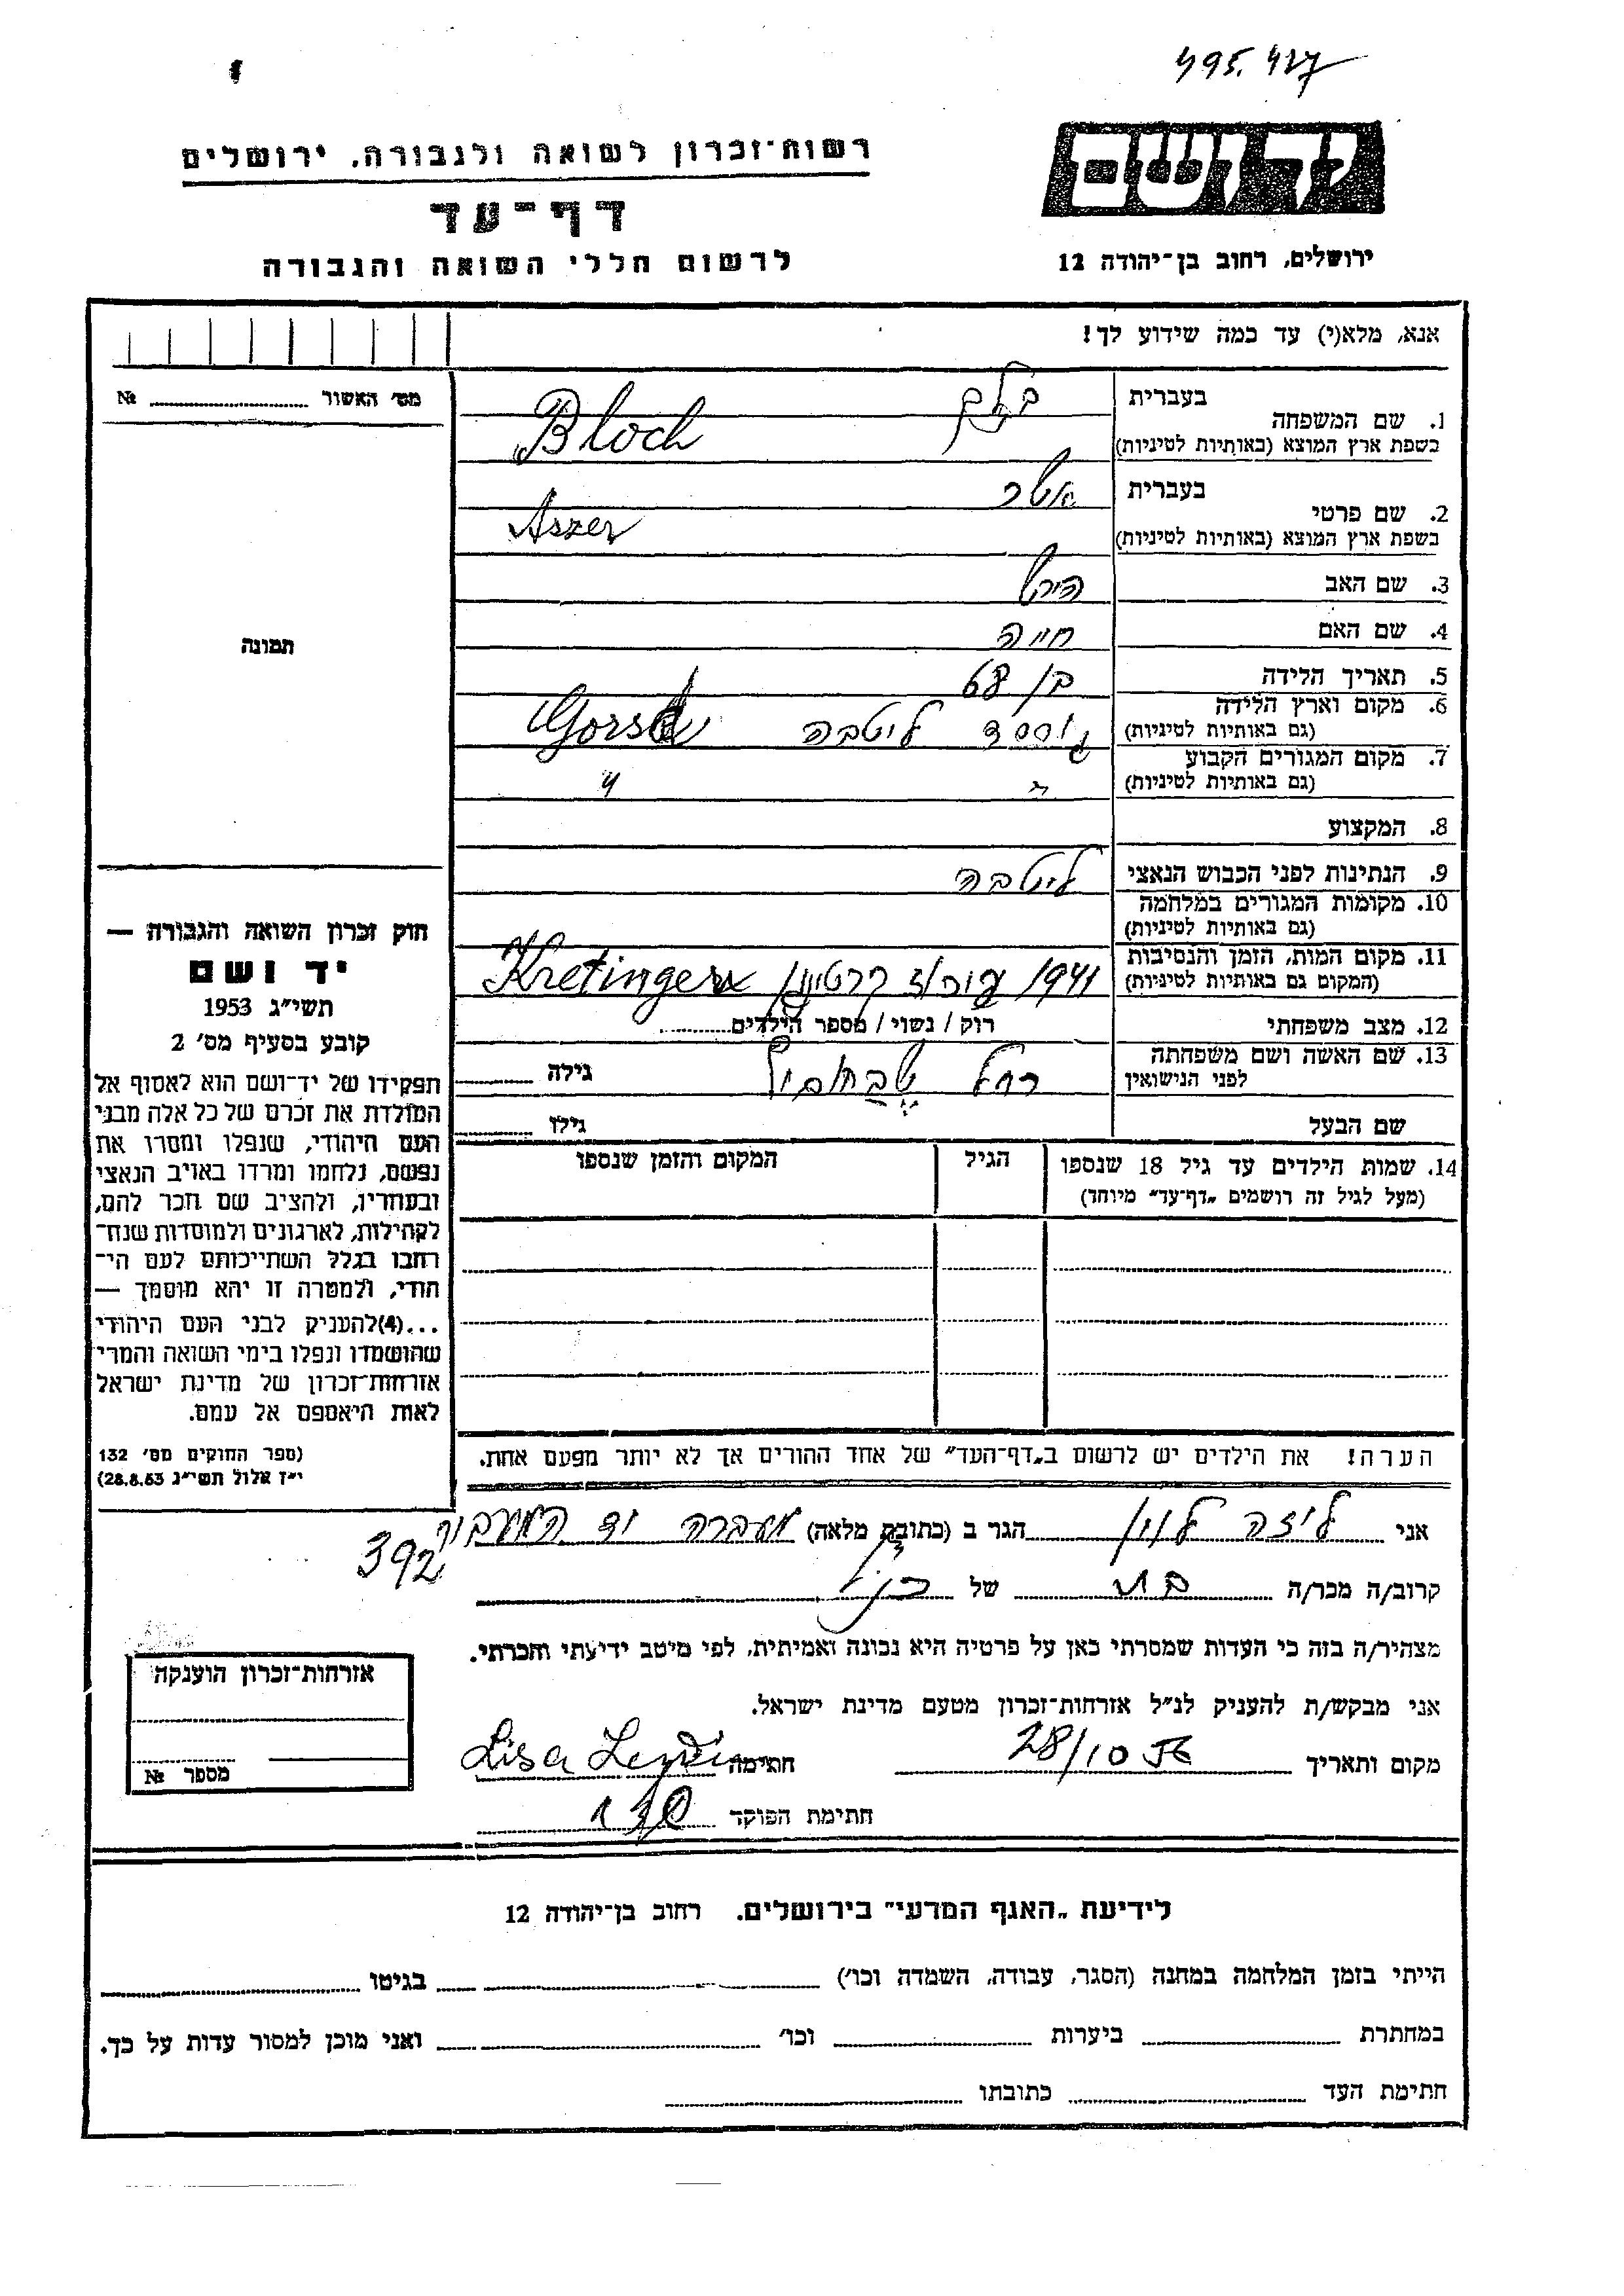 495.427
רשות־זכרון לשואה ולגבורה, ירושלים
יד ושם
דף־עד
ירושלים, רחוב בן־יהודה 12
לרשום חללי השואה והגבורה
אנא, מלא(י) עד כמה שידוע לך!
מס׳ האשור № 
1. שם המשפחה
בעברית בלך
בשפת ארץ המוצא (באותיות לטיניות) Bloch
2. שם פרטי
בעברית אשר
בשפת ארץ המוצא (באותיות לטיניות) Aszer
3. שם האב
4. שם האם חייה
תמונה
5. תאריך הלידה בן 68
6. מקום וארץ הלידה
(גם באותיות לטיניות) גורסד ליטבה
7. מקום המגורים הקבוע
(גם באותיות לטיניות) " "
8. המקצוע
9. הנתינות לפני הכבוש הנאצי ליטבה
10. מקומות המגורים במלחמה
(גם באותיות לטיניות)
11. מקום המות, הזמן והנסיבות
(המקום גם באותיות לטיניות) 1941
12. מצב משפחתי רוק / נשוי / מספר הילדים
13. שם האשה ושם משפחתה
לפני הנישואין רחל גילה
שם הבעל גילו
14. שמות הילדים עד גיל 18 שנספו הגיל המקום והזמן שנספו
(מעל לגיל זה רושמים „דף־עד״ מיוחד)
חוק זכרון השואה והגבורה —
יד ושם
תשי״ג 1953
קובע בסעיף מס׳ 2
תפקידו של יד־ושם הוא לאסוף אל
המולדת את זכרם של כל אלה מבני
העם היהודי, שנפלו ומסרו את
נפשם, נלחמו ומרדו באויב הנאצי
ובעוזריו, ולהציב שם וזכר להם,
לקהילות, לארגונים ולמוסדות שנח־
רבו בגלל השתייכותם לעם הי־
הודי, ולמטרה זו יהא מוסמך —
...(4)להעניק לבני העם היהודי
שהושמדו ונפלו בימי השואה והמרי
אזרחות־זכרון של מדינת ישראל
לאות היאספם אל עמם.
(ספר החוקים מס׳ 132
י״ז אלול תשי״ג 28.8.53)
הערה! את הילדים יש לרשום ב„דף־העד״ של אחד ההורים אך לא יותר מפעם אחת.
אני ליזה לוין הגר ב (כתובת מלאה) מעברה יד המעביר
392
קרוב/ה מכר/ה בת של הנ״ל
מצהיר/ה בזה כי העדות שמסרתי כאן על פרטיה היא נכונה ואמיתית, לפי מיטב ידיעתי והכרתי.
אני מבקש/ת להעניק לנ״ל אזרחות־זכרון מטעם מדינת ישראל.
מקום ותאריך 28/10 56 חתימה
חתימת הפוקד
אזרחות־זכרון הוענקה
מספר №
לידיעת „האגף המדעי״ בירושלים. רחוב בן־יהודה 12
הייתי בזמן המלחמה במחנה (הסגר, עבודה, השמדה וכו׳) בגיטו
במחתרת ביערות וכו׳ ואני מוכן למסור עדות על כך.
חתימת העד כתובתו